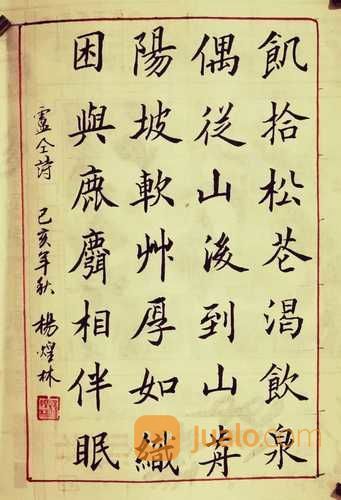 飢拾松花渴飲泉
偶從山後到山歬
陽坡軟艸厚如織
困與鹿麛相伴眠
盧仝詩 己亥年秋 楊煌林
jualo.com